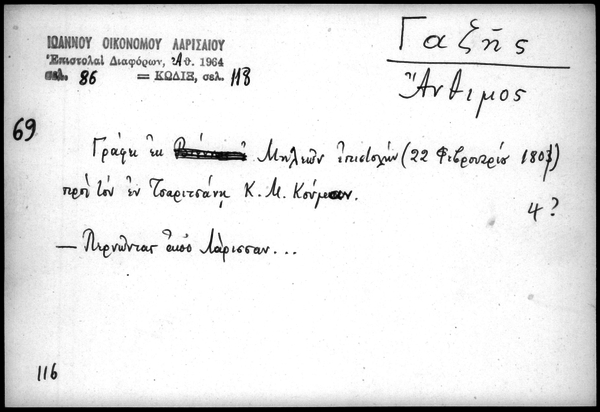 ΙΩΑΝΝΟΥ ΟΙΚΟΝΟΜΟΥ ΛΑΡΙΣΑΙΟΥ
Ἐπιστολαὶ Διαφόρων, Ἀθ. 1964
σελ. 86 = ΚΩΔΙΞ, σελ. 118
Γαζῆς
Ἄνθιμος
69
Γράφει ἐκ Μηλεῶν ἐπιστολήν (22 Φεβρουαρίου 1807)
πρὸς τὸν ἐν Τσαριτσάνῃ Κ. Μ. Κούμαν.
4?
— Περνῶντας ἀπὸ Λάρισσαν...
116